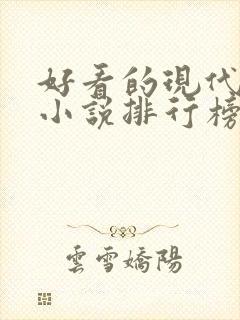 好看的現代
小說排行榜
雲雪嬌陽